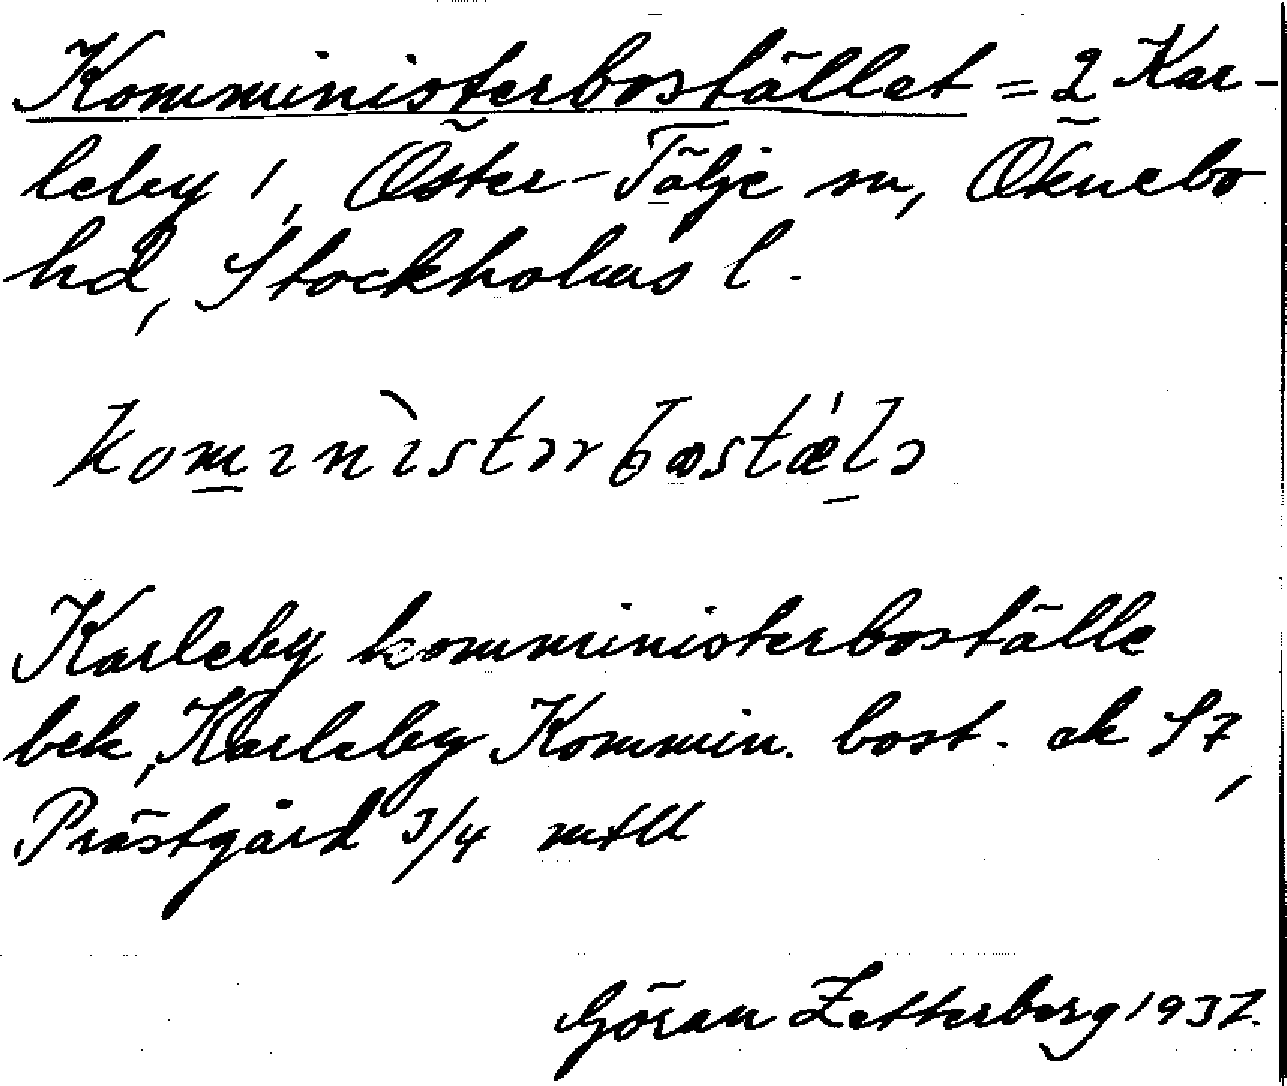 Komministerbostället = 2 Kar-
leby 1, Öster-Tälje sn, Öknebo
hd, Stockholms l.
kom̲ınìstərbostǽl̲ə
Karleby komministerboställe
bek, Karleby Kommin. bost. ak S7,
Prästgård 3/4 mtll
Göran Zetterberg 1937.